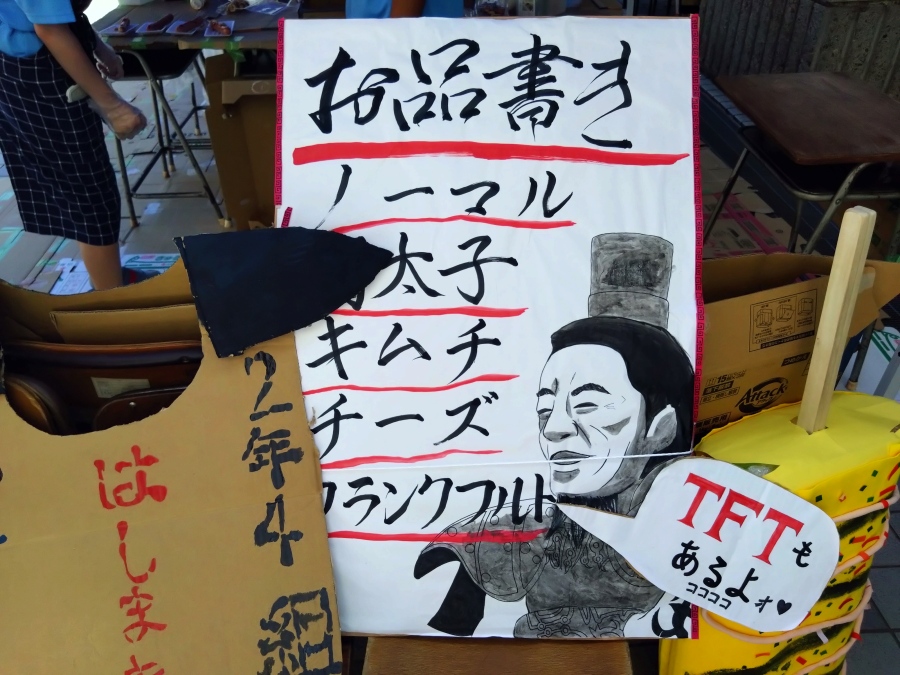 お品書き
ノーマル
太子
キムチ
チーズ
フランクフルト
TFTも
あるよォ♥
ココココ
2年4組
はしま
Attack